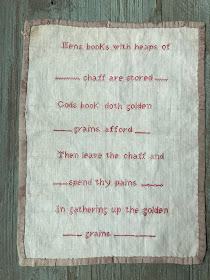 Mens books with heaps of
chaff are stored
Gods book doth golden
grains afford
Then leave the chaff and
spend thy pains
In gathering up the golden
grains